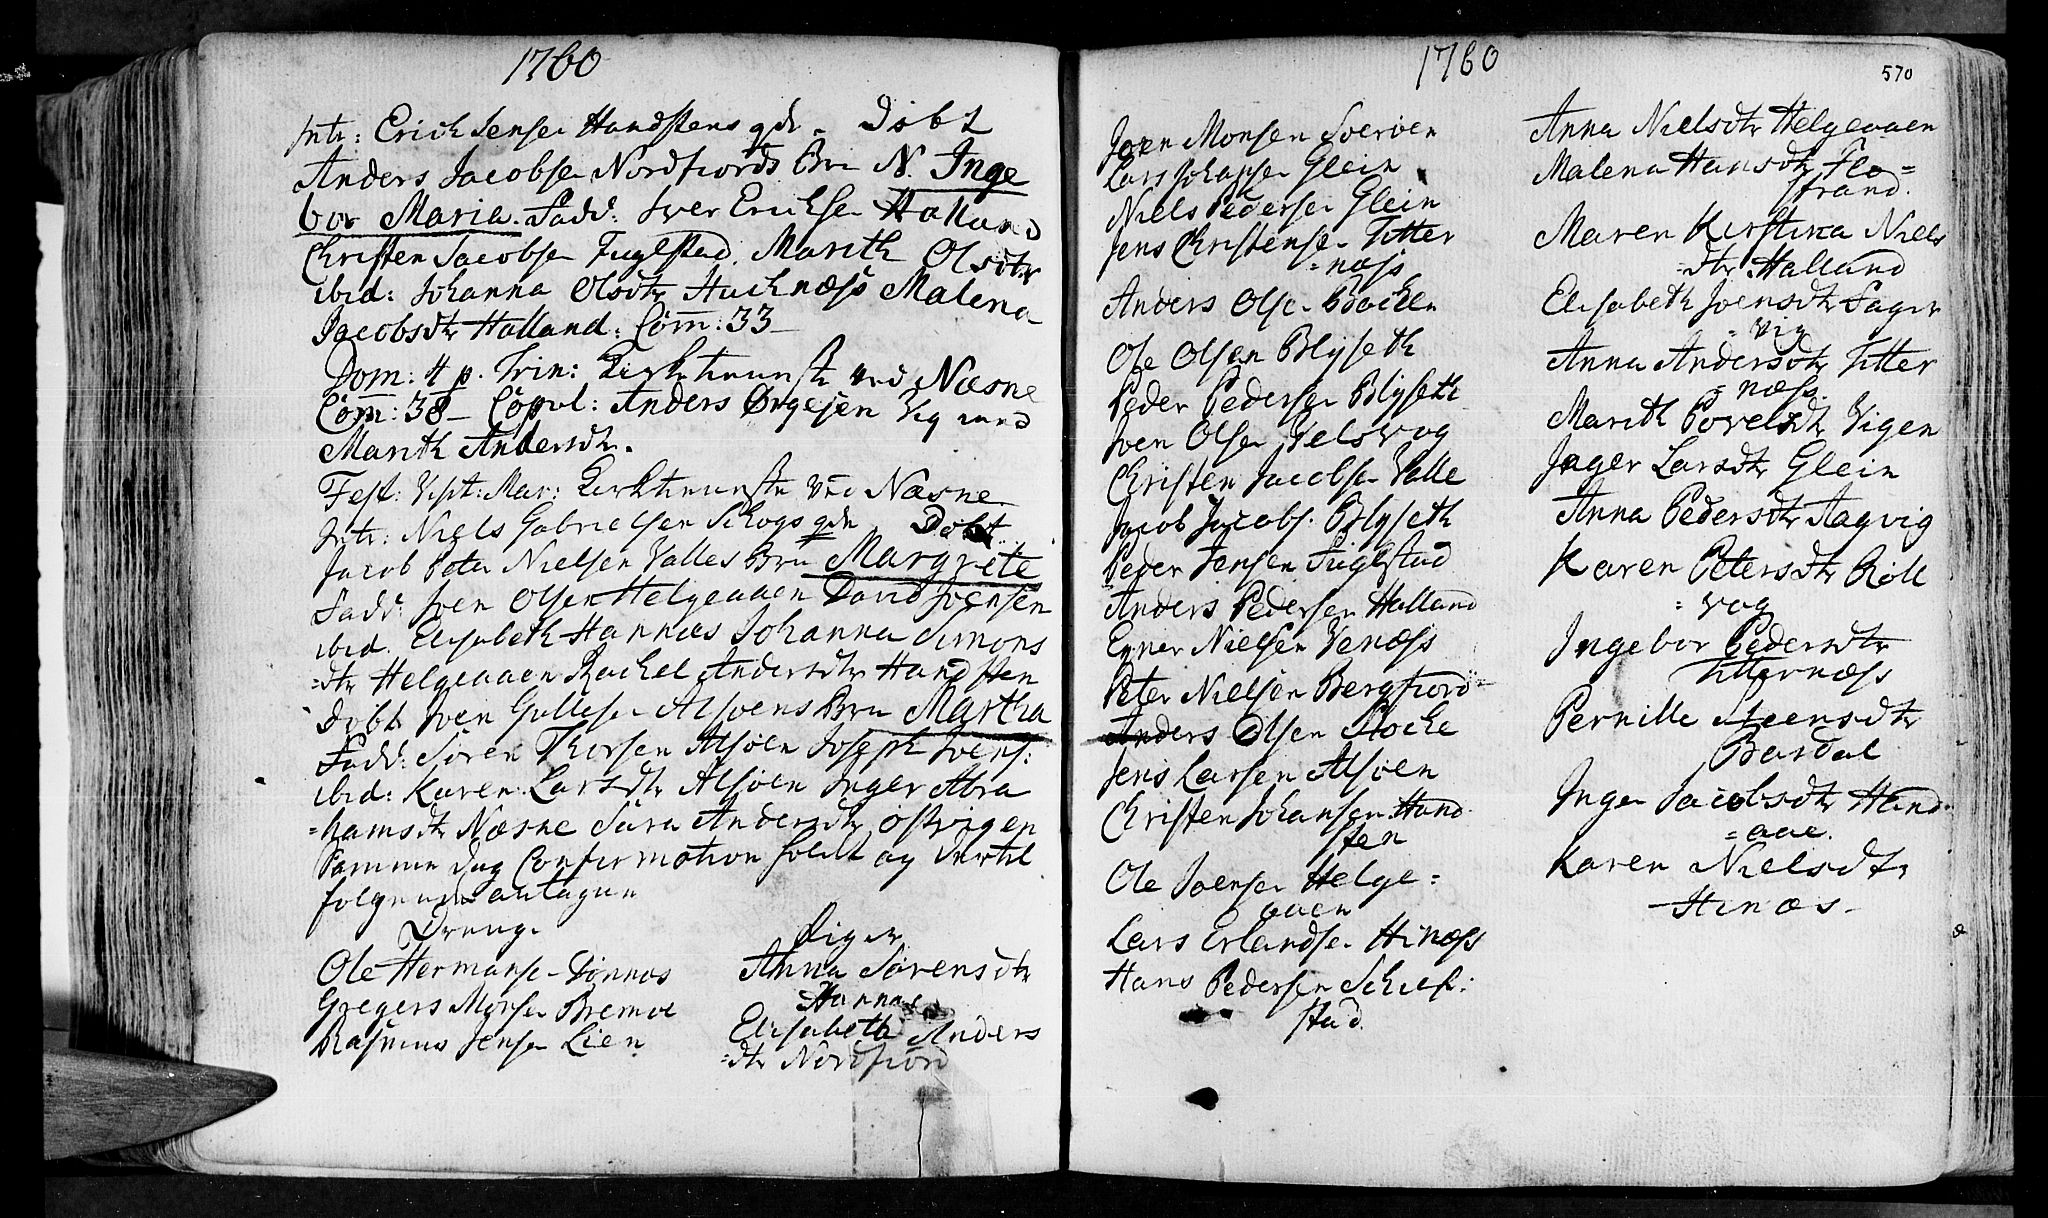 1760
Intr: Erich Jensen Handstens qde. Døbt
Anders Jacobsen Nordfiords Brn N. Inge
bor Maria. Fadd: Iver Erichsen Halland
Christen Jacobsen Fuglstad. Marith Olsdtr
ibid: Johanna Olsdtr Huchnæss Malena
Jacobsdtr Halland. Com: 33
Dom: 4 p. Trin: Kirktienniste ved Næsne
Com: 38 – Copul: Anders Ørgejen Vig med
Marith Andersdtr.
Fest: Visit: Mar: Kirktienniste ved Næsne
Intr: Niels Gabrielsen Schogs qde. Døbt
Jacob Peter Nielsen Valles Brn Margrete
Fadd: Joen Olsen Helgeaaen David Joensen
ibid. Elisabeth Hannæs Johanna Simons
=dtr Helgeaaen Rachel Andersdtr Handsten
Døbt Joen Gullesen Alsøens Brn Martha
Fadd: Søren Thorsen Alsøen Joseph Joens:
ibid: Karen Larsdtr Alsøen Inger Abra
=hamsdtr Næsne Sara Andersdtr Østvigen
Samme Dag Confirmation holdt og dertil
følgende antagne
Drenge
Ole Hermanse Dønnæs
Gregers Morsen Bremoe
Rasmus Jensen Lien
Piger
Anna Sørensdtr
Hannæs
Elisabeth Anders
=dtr Nordfiord
1760
570
Joen Monsen Soeroen
Lars Johansen Glein
Niels Pedersen Glein
Jens Christense Titter
=næss
Anders Olse Bachen
Ole Olsen Blyseth
Peder Pedersen Blyseth
Joen Olsen Velsvog
Christen Jacobse Valle
Jacob Jacobs. Blyseth
Peder Jensen Fuglstad
Anders Pedersen Halland
Enner Nielsen Venæss
Peter Nielsen Bergfiord
Anders Olsen Stocke
Jens Larsen Alsøen
Christen Johansen Hand
sten
Ole Joensen Helge=
aaen
Lars Erlandsen Hinæss
Hans Pedersen Schief:
stad.
Anna Nielsdtr Helgeaaen
Malena Hansdtr Flo=
strand.
Maren Kirstina Niels
=dtr Halland
Elisabeth Joensdtr Sager
=vig
Anna Andersdtr Titter
=næss.
Marith Povelsdtr Vigen
Inger Larsdtr Glein
Anna Pedersdtr Aagvig
Karen Petersdtr Röll
=vog
Ingebor Pedersdtr
Titternæss
Pernille Steensdtr
Bardal
Inger Jacobsdtr Hand
=aae.
Karen Nielsdtr
–Hinæs–